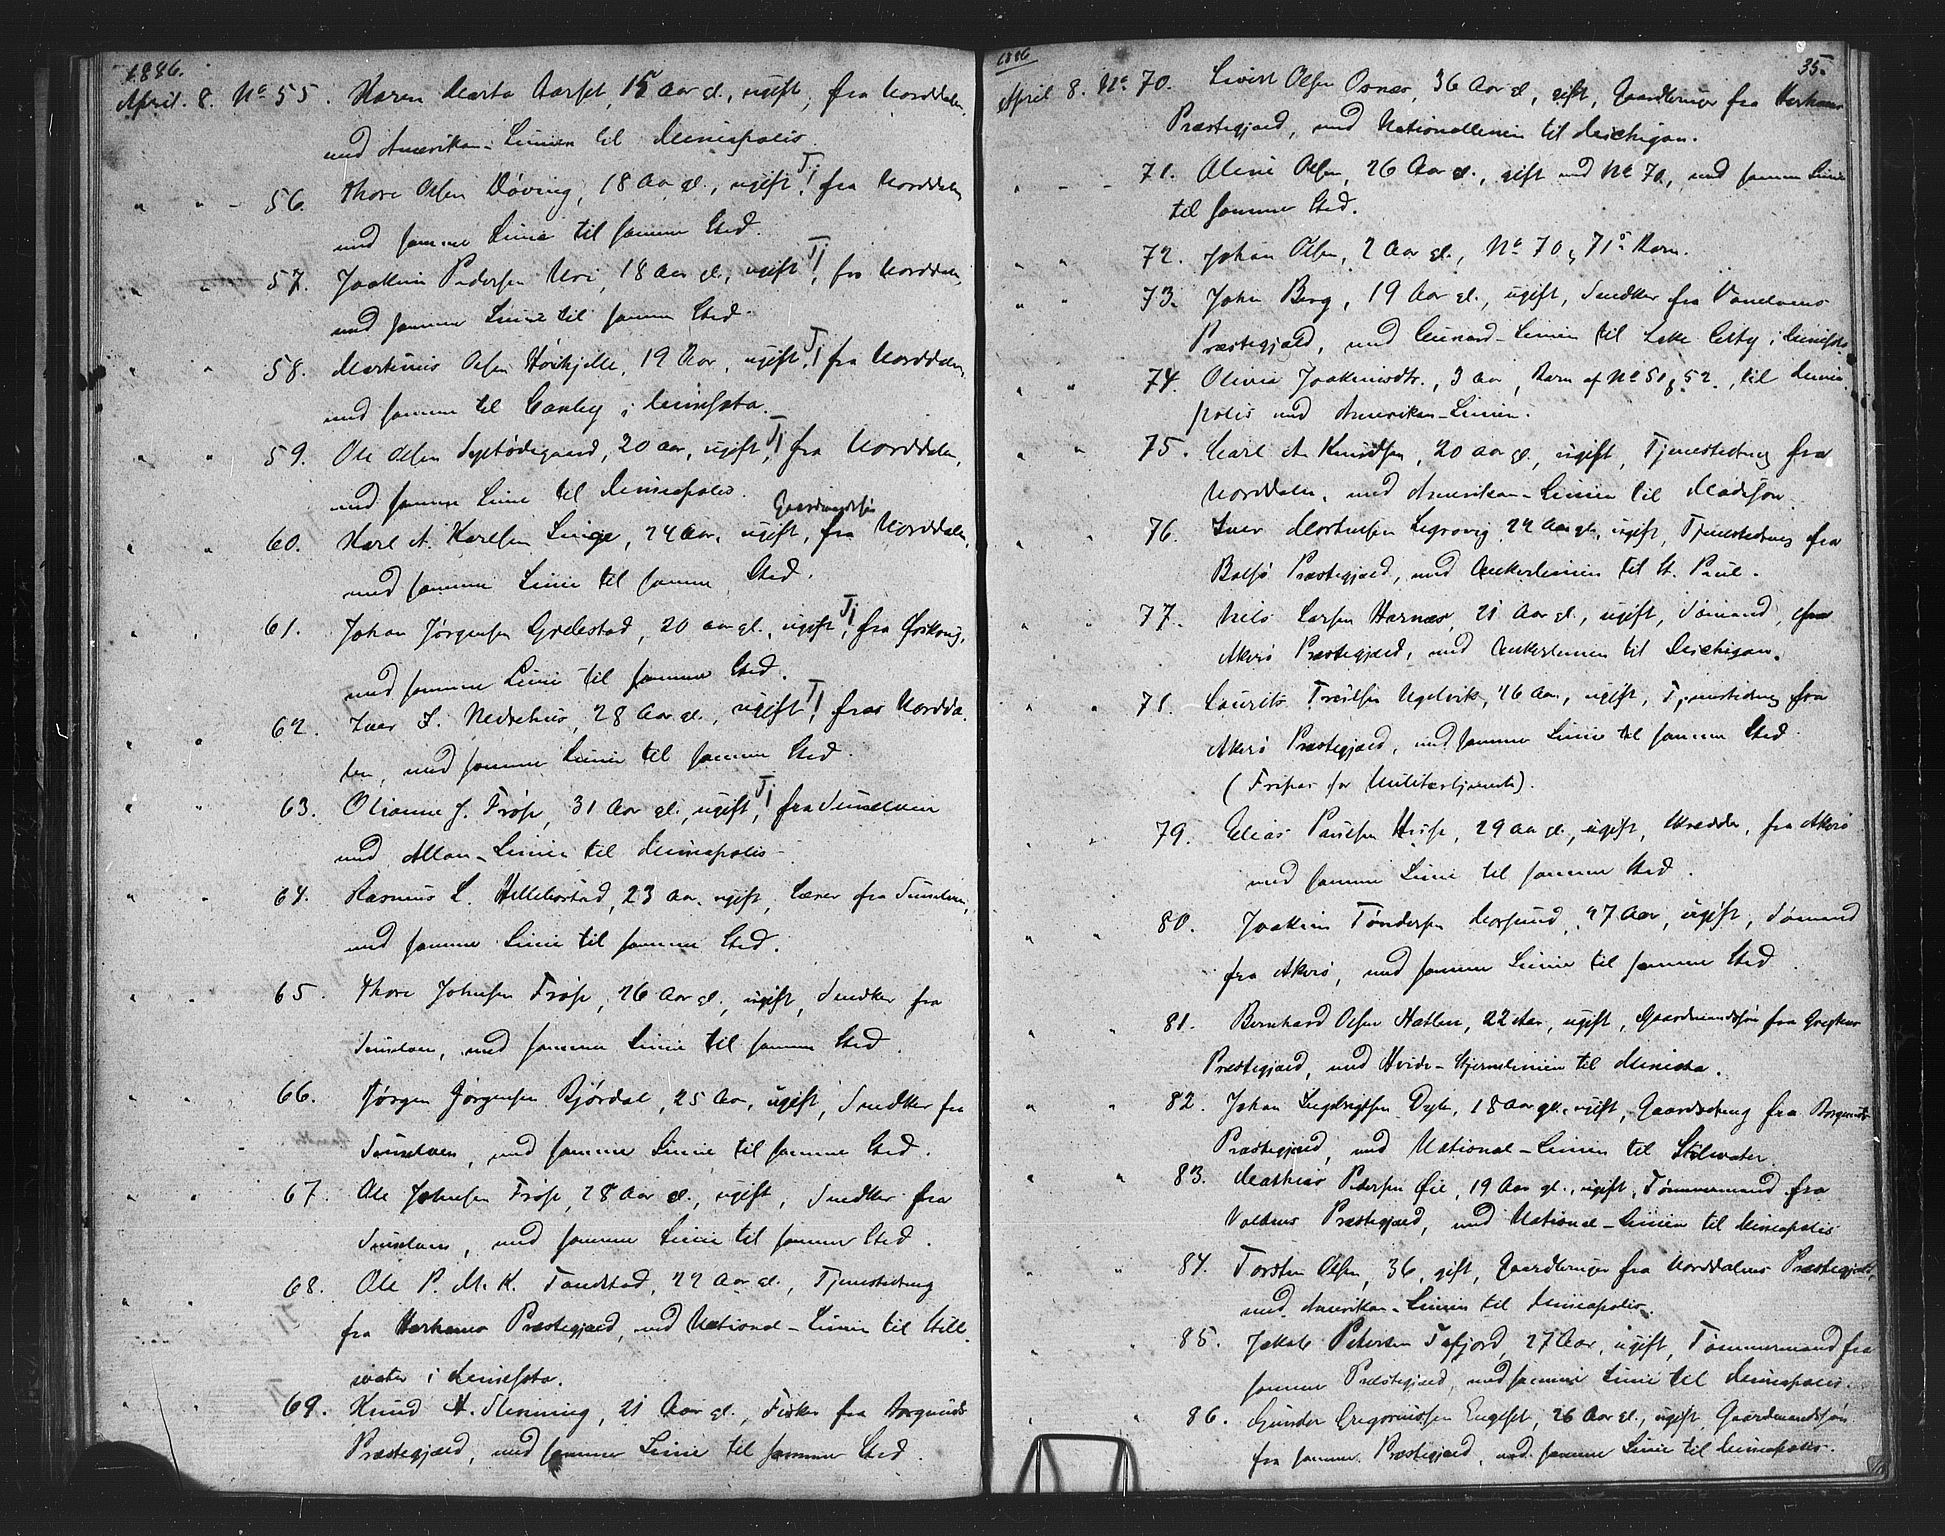 1886.
April. 8. No 55. Karen Marta Aarset, 15 Aar gl., ugift, fra Norddalen,
med Amerika-Linien til Mineapolis
" " - 56. Thore Olsen Døving, 18 Aar gl., ugift, Tj fra Norddalen
med samme Linie til samme Sted.
" " 57. Joakim Pedersen Uri, 18 Aar gl., ugift, Tj fra Norddalen,
med samme Linie til samme Sted.
" " 58. Martinus Olsen Hovhjelle, 19 Aar, ugift, Tj fra Norddalen,
med samme til Canby i Minesota.
" " 59. Ole Olsen Syltødegaard, 20 Aar, ugift, Tj fra Norddalen,
med samme Linie til Mineapolis.
Gaardmandssøn
" " 60. Karl A. Karlsen Linge, 24 Aar, ugift, fra Norddalen,
med samme Linie til samme Sted.
" " 61. Johan Jørgensen Grebstad, 20 Aar gl., ugift, Tj fra Ørskoug,
med samme Linie til samme Sted.
" " 62. Iver I. Nedrehus, 28 Aar gl., ugift, Tj fra Nordda-
len, med samme Linie til samme Sted.
" " 63. Olianne J. Frøse, 31 Aar gl., ugift, Tj fra Sunelven
med Allan-Linien til Mineapolis-
" " 64. Rasmus L. Hellebostad, 23 Aar, ugift, Lærer fra Sunelven,
med samme Linie til samme Sted.
" " 65. Thore Johnsen Frøse, 26 Aar gl., ugift, Snedker fra
Sunelven, med samme Linie til samme Sted.
" " 66. Jørgen Jørgensen Bjørdal, 25 Aar, ugift, Snedker fra
Sunelven, med samme Linie til samme Sted.
" " 67. Ole Johnsen Frøse, 28 Aar gl., ugift, Snedker fra
Sunelven, med samme Linie til samme Sted.
" " 68. Ole P. M. K. Tandstad, 22 Aar gl., Tjenestedreng
fra Harhams Præstegjæld, med National-Linie til Still-
water i Minesota.
69. Knud H. Slenning, 21 Aar gl., Fisker fra Borgunds
Præstegjæld, med samme Linie til samme Sted.
1886 35.
April 8. No 70. Sivert Olsen Osnes, 36 Aar gl, gift, Gaardbruger fra Harhams
Præstegjæld, med Nationallinien til Michigan.
" - - 71. Oline Olsen, 26 Aar gl., gift med No 70, med samme Linie
til samme Sted.
" " 72. Johan Olsen, 2 Aar gl., No 70 & 71s Barn.
" " 73. John Berg, 19 Aar gl., ugift, Snedker fra Vanelvens
Præstegjæld, med Cunard-Linien til Lake City i Minesota
" " 74. Olivia Joakimsdtr., 3 Aar, Barn af No 51 & 52., til Minea-
polis med Amerika-Linien.
" " 75. Carl A. Knudsen, 20 Aar gl., ugift, Tjenestedreng fra
Norddalen, med Amerika-Linien til Madison.
" " 76. Iver Mortensen Legrovig, 22 Aar gl., ugift, Tjenestedreng fra
Bolsø Præstegjæld, med Ankerlinien til St. Paul.
" " 77. Nils Larsen Harnæs, 21 Aar gl., ugift, Sømand, fra
Akerø Præstegjæld, med Ankerlinien til Michigan.
" " 78. Laurits Knudsen Ugelvik, 26 Aar, ugift, Tjenestedreng fra
Akerø Præstegjæld, med samme Linie til samme Sted.
(Fripas for Militærtjeneste).
" " 79. Elias Paulsen Huse, 29 Aar gl., ugift, Skrædder, fra Akerø
med samme Linie til samme Sted.
" " 80. Joakim Tøndersen Morsund, 27 Aar, ugift, Sømand
fra Akerø, med samme Linie til samme Sted.
" " 81. Bernhard Olsen Hatlen, 22 Aar, ugift, Gaardmandssøn fra
Præstegjæld, med Hvide-Stjernelinien til
" " 82. Johan Ingebrigtsen Dyb, 18 Aar gl., ugift, Gaardsdreng fra Borgunds
Præstegjæld, med National-Linien til Stilwater.
" " 83. Mathias Pedersen Øie, 19 Aar gl., ugift, Tømmermand fra
Voldens Præstegjæld, med National-Linien til Mineapolis
" " 84. Torsten Olsen, 36, gift, Gaardbruger fra Norddalens Præstegjæld,
med Amerika-Linien til Mineapolis.
" " 85. Jakob Petersen Tafjord, 27 Aar, ugift, Tømmermand fra
samme Præstegjæld, med samme Linie til Mineapolis.
" " 86. Gunder Gregoriussen Engeset, 26 Aar gl., ugift, Gaardmandssøn
fra samme Præstegjæld, med samme Linie til Mineapolis.